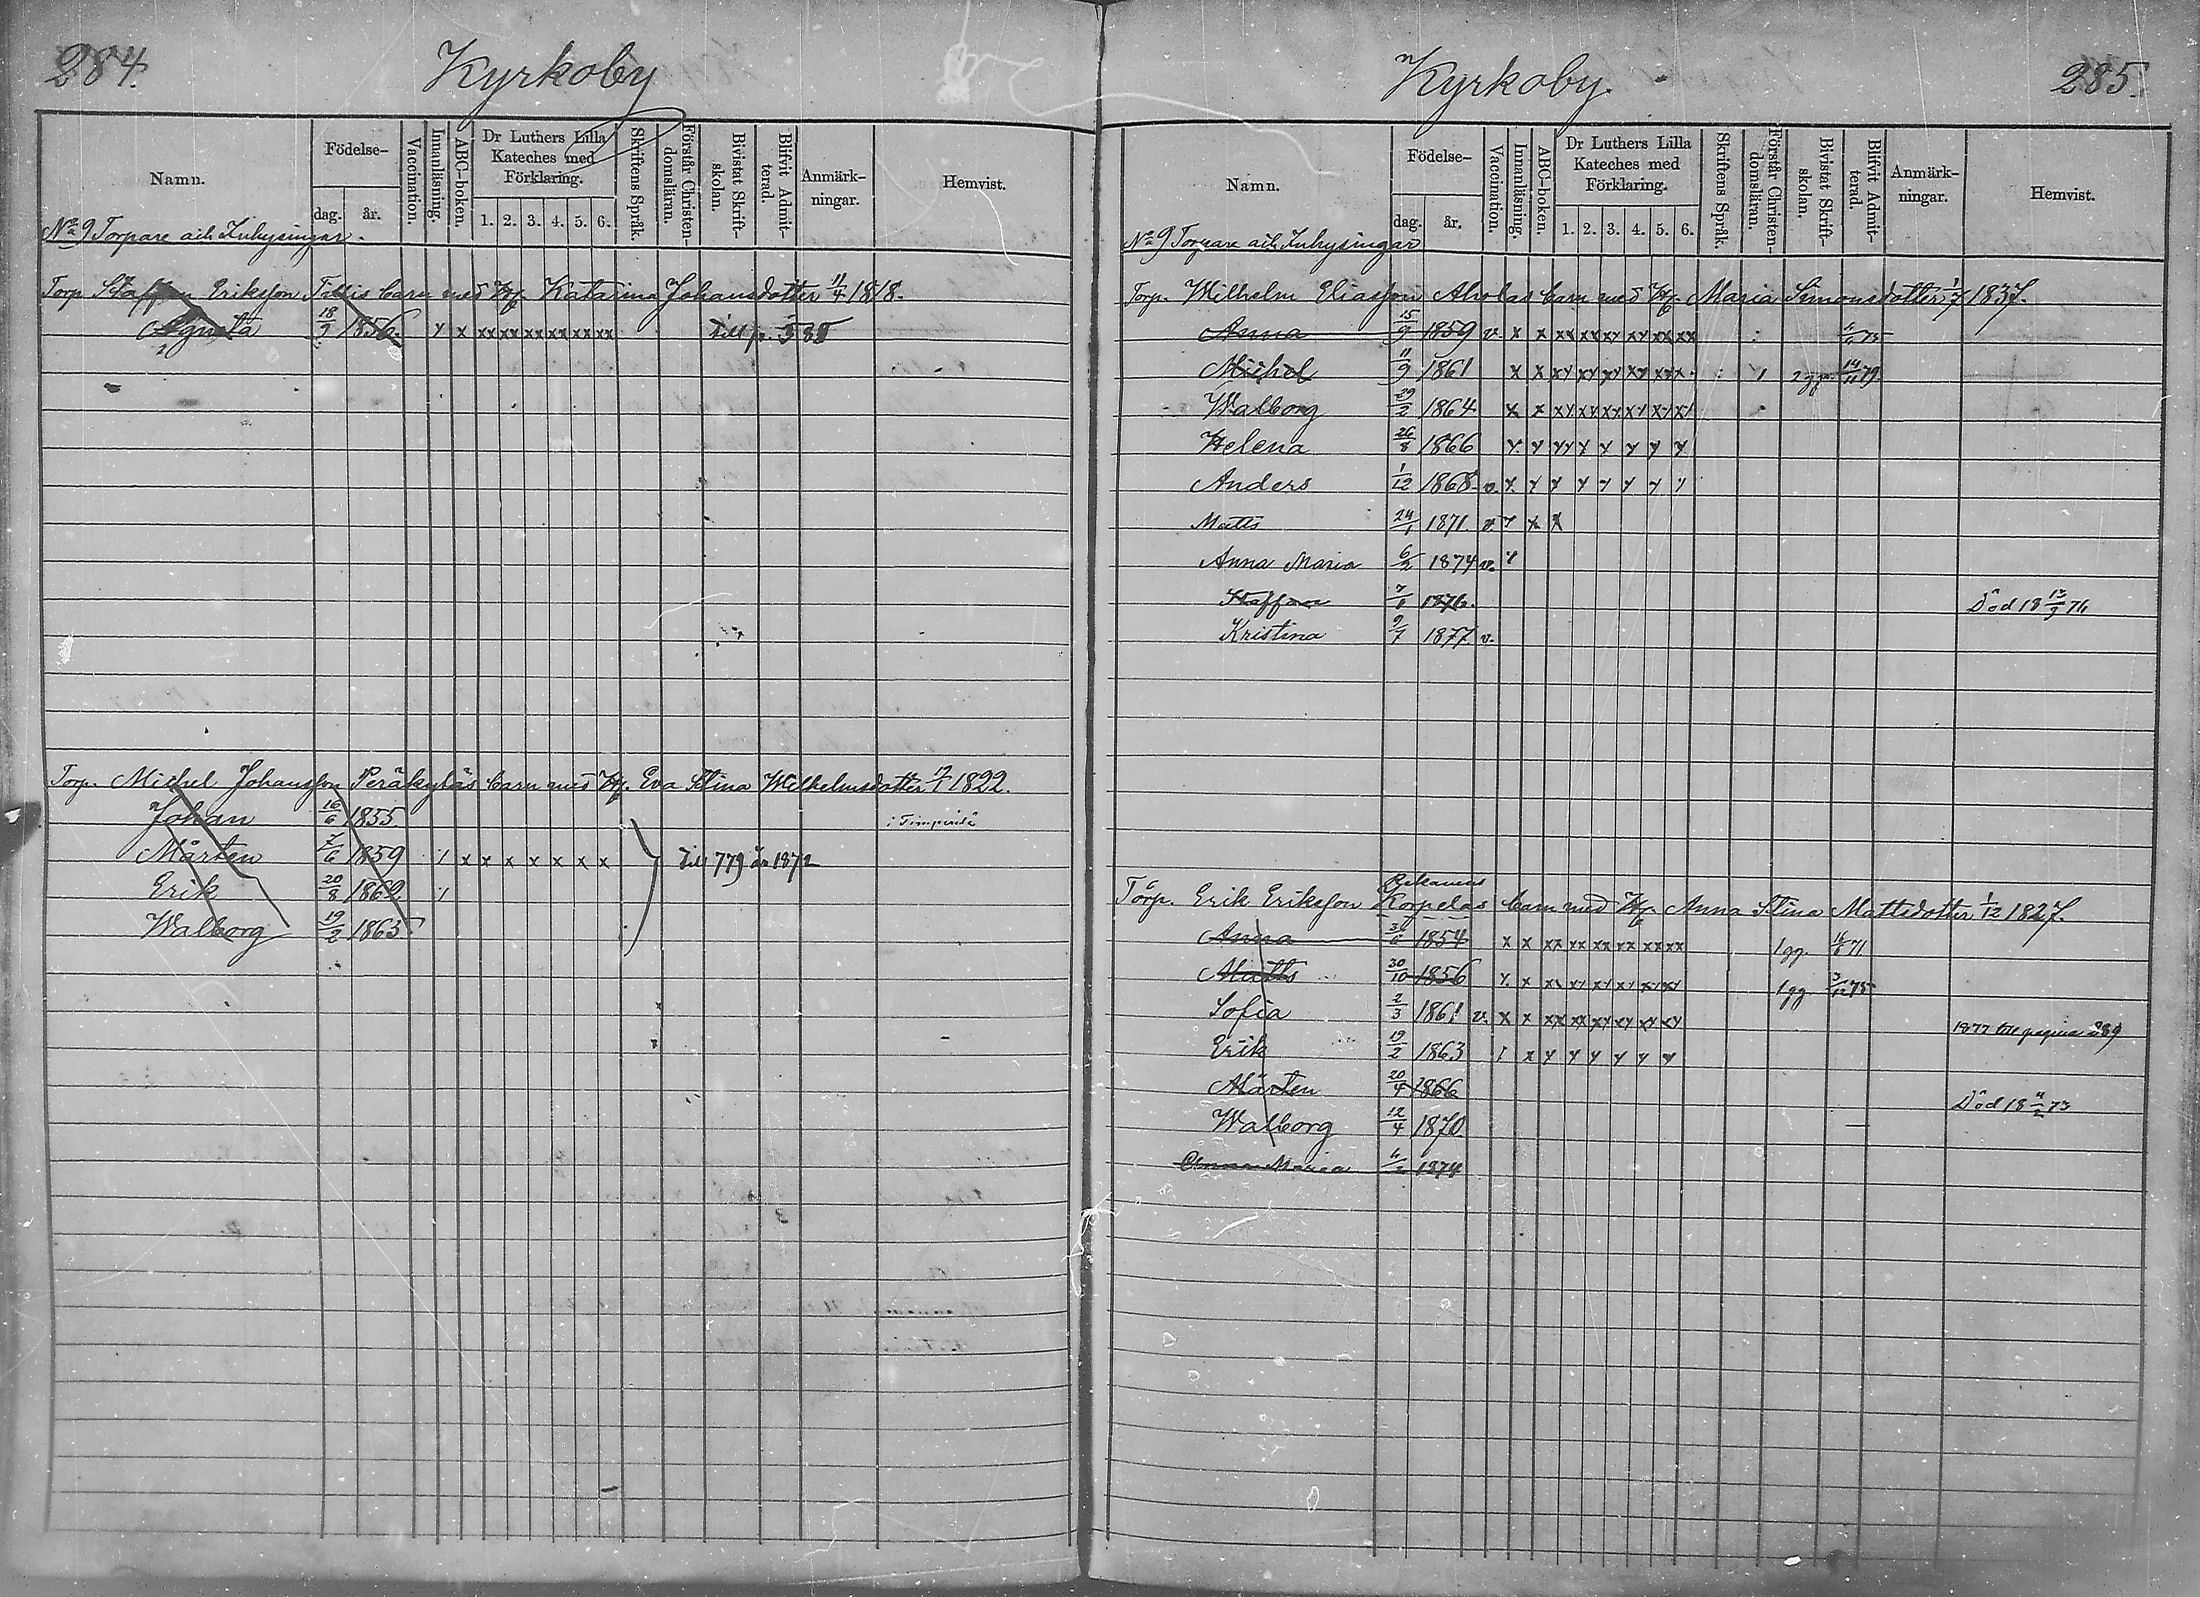 284.
Kyrkoby
Namn.
Födelse-
dag. år.
Vaccination.
Innanläsning.
ABC-boken.
Dr Luthers Lilla
Kateches med
Förklaring.
1. 2. 3. 4. 5. 6.
Skriftens Språk.
Förstår Christen-
domsläran.
Bivistat Skrift-
skolan.
Blifvit Admit-
terad.
Anmärk-
ningar.
Hemvist.
No 9 Torpare och Inhysingar.
Torp. Staffan Eriksson Tillis barn med Hu. Katarina Johansdotter 11/4 1818.
Agneta 18/9 1856 y x xx xx xx xx xx xx Till p.
Torp. Michel Johansson Peräkyläs barn med Hu. Eva Stina Wilhelmsdotter 1822.
Johan 16/6 1855
Mårten 7/6 1859 x x x x x x x Till 779 år 1872
Erik 20/8 1862
Walborg 19/2 1865
Kyrkoby.
285.
Namn.
Födelse-
dag. år.
Vaccination.
Innanläsning.
ABC-boken.
Dr Luthers Lilla
Kateches med
Förklaring.
1. 2. 3. 4. 5. 6.
Skriftens Språk.
Förstår Christen-
domsläran.
Bivistat Skrift-
skolan.
Blifvit Admit-
terad.
Anmärk-
ningar.
Hemvist.
No 9 Torpare och Inhysingar
Torp. Wilhelm Eliasson Aholas barn med Hu. Maria Simonsdotter 1/7 1837.
Anna 15/9 1859 v. x x xx xx xy xy xx xx
Michel 11/9 1861 x x xy xy xy xy xx x 2 gg. 14/11 79.
Walborg 29/2 1864 x x xy xx xx xy xy xy
Helena 26/8 1866 y y yy y y y y y
Anders 1/12 1868 v. y y y y y y y y
Matts 24/1 1871 v. y x x
Anna Maria 6/2 1874 v. y
Staffan 7/1 1876. Död 18 13/9 76
Kristina 9/7 1877 v.
Torp. Erik Eriksson Korpelas barn med Hu. Anna Stina Mattsdotter 1/12 1827.
Anna 1854 x x xx xx xx xx xx xx 1 gg. 71
Matts 30/10 1856 y x xx xy xy xy xy xy 1 gg. 75
Sofia 2/3 1861 v. x x xx xx xy xy xy xy 1877 till pagina 289
Erik 19/2 1863 y x y y y y y y
Mårten 20/4 1866 Död 18 73
Walborg 12/4 1870
Anna Maria 1874